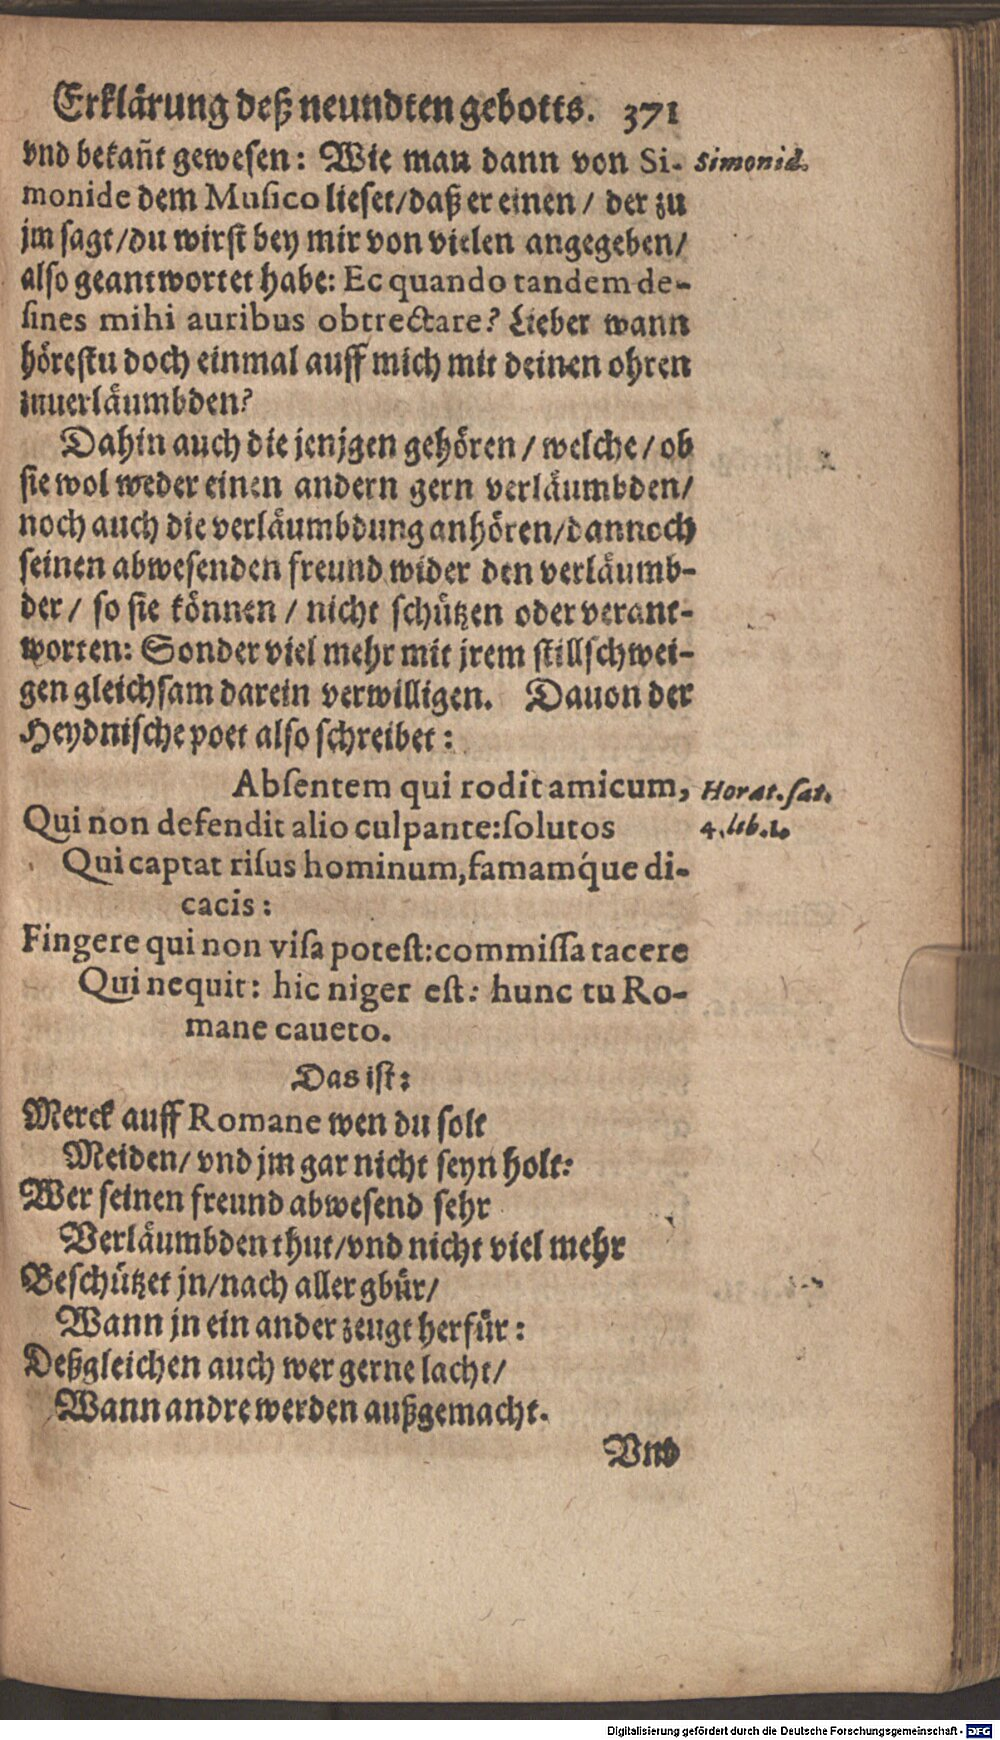 Erklärung deß neundten gebotts. 371
vnd bekañt gewesen: Wie man dann von Si- Simonid.
monide dem Musico lieset/daß er einen/ der zu
jm sagt/du wirst bey mir von vielen angegeben/
also geantwortet habe: Ec quando tandem de-
sines mihi auribus obtrectare? Lieber wann
hörestu doch einmal auff mich mit deinen ohren
zuuerläumbden?
Dahin auch die jenjgen gehören/welche/ob
sie wol weder einen andern gern verläumbden/
noch auch die verläumbdung anhören/dannoch
seinen abwesenden freund wider den verläumb-
der/ so sie können/ nicht schützen oder verant-
worten: Sonder viel mehr mit jrem stillschwei-
gen gleichsam darein verwilligen. Dauon der
Heydnische poet also schreibet:
Absentem qui rodit amicum, Horat. sat.
Qui non defendit alio culpante: solutos 4. lib. 1.
Qui captat risus hominum, famamq́ue di-
cacis:
Fingere qui non visa potest: commissa tacere
Qui nequit: hic niger est: hunc tu Ro-
mane caueto.
Das ist:
Merck auff Romane wen du solt
Meiden/ vnd jm gar nicht seyn holt:
Wer seinen freund abwesend sehr
Verläumbden thut/vnd nicht viel mehr
Beschützet jn/nach aller gbür/
Wann jn ein ander zeugt herfür:
Deßgleichen auch wer gerne lacht/
Wann andre werden außgemacht.
Vnd
Digitalisierung gefördert durch die Deutsche Forschungsgemeinschaft - DFG